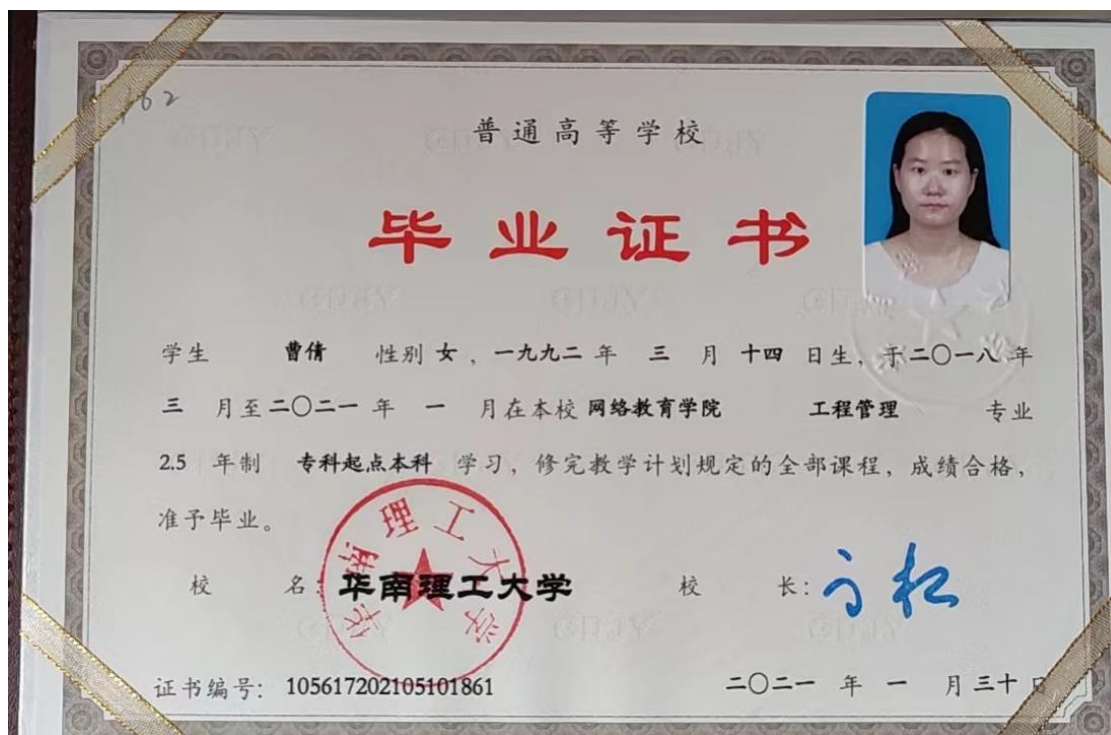 162
普通高等学校
毕业证书
学生 曹倩 性别 女，一九九二 年 三 月 十四 日生，于二〇一八 年
三 月至二〇二一 年 一 月在本校 网络教育学院 工程管理 专业
2.5 年制 专科起点本科 学习，修完教学计划规定的全部课程，成绩合格，
准予毕业。
华南理工大学
校 名：华南理工大学 校 长：
证书编号：105617202105101861 二〇二一 年 一 月三十 日